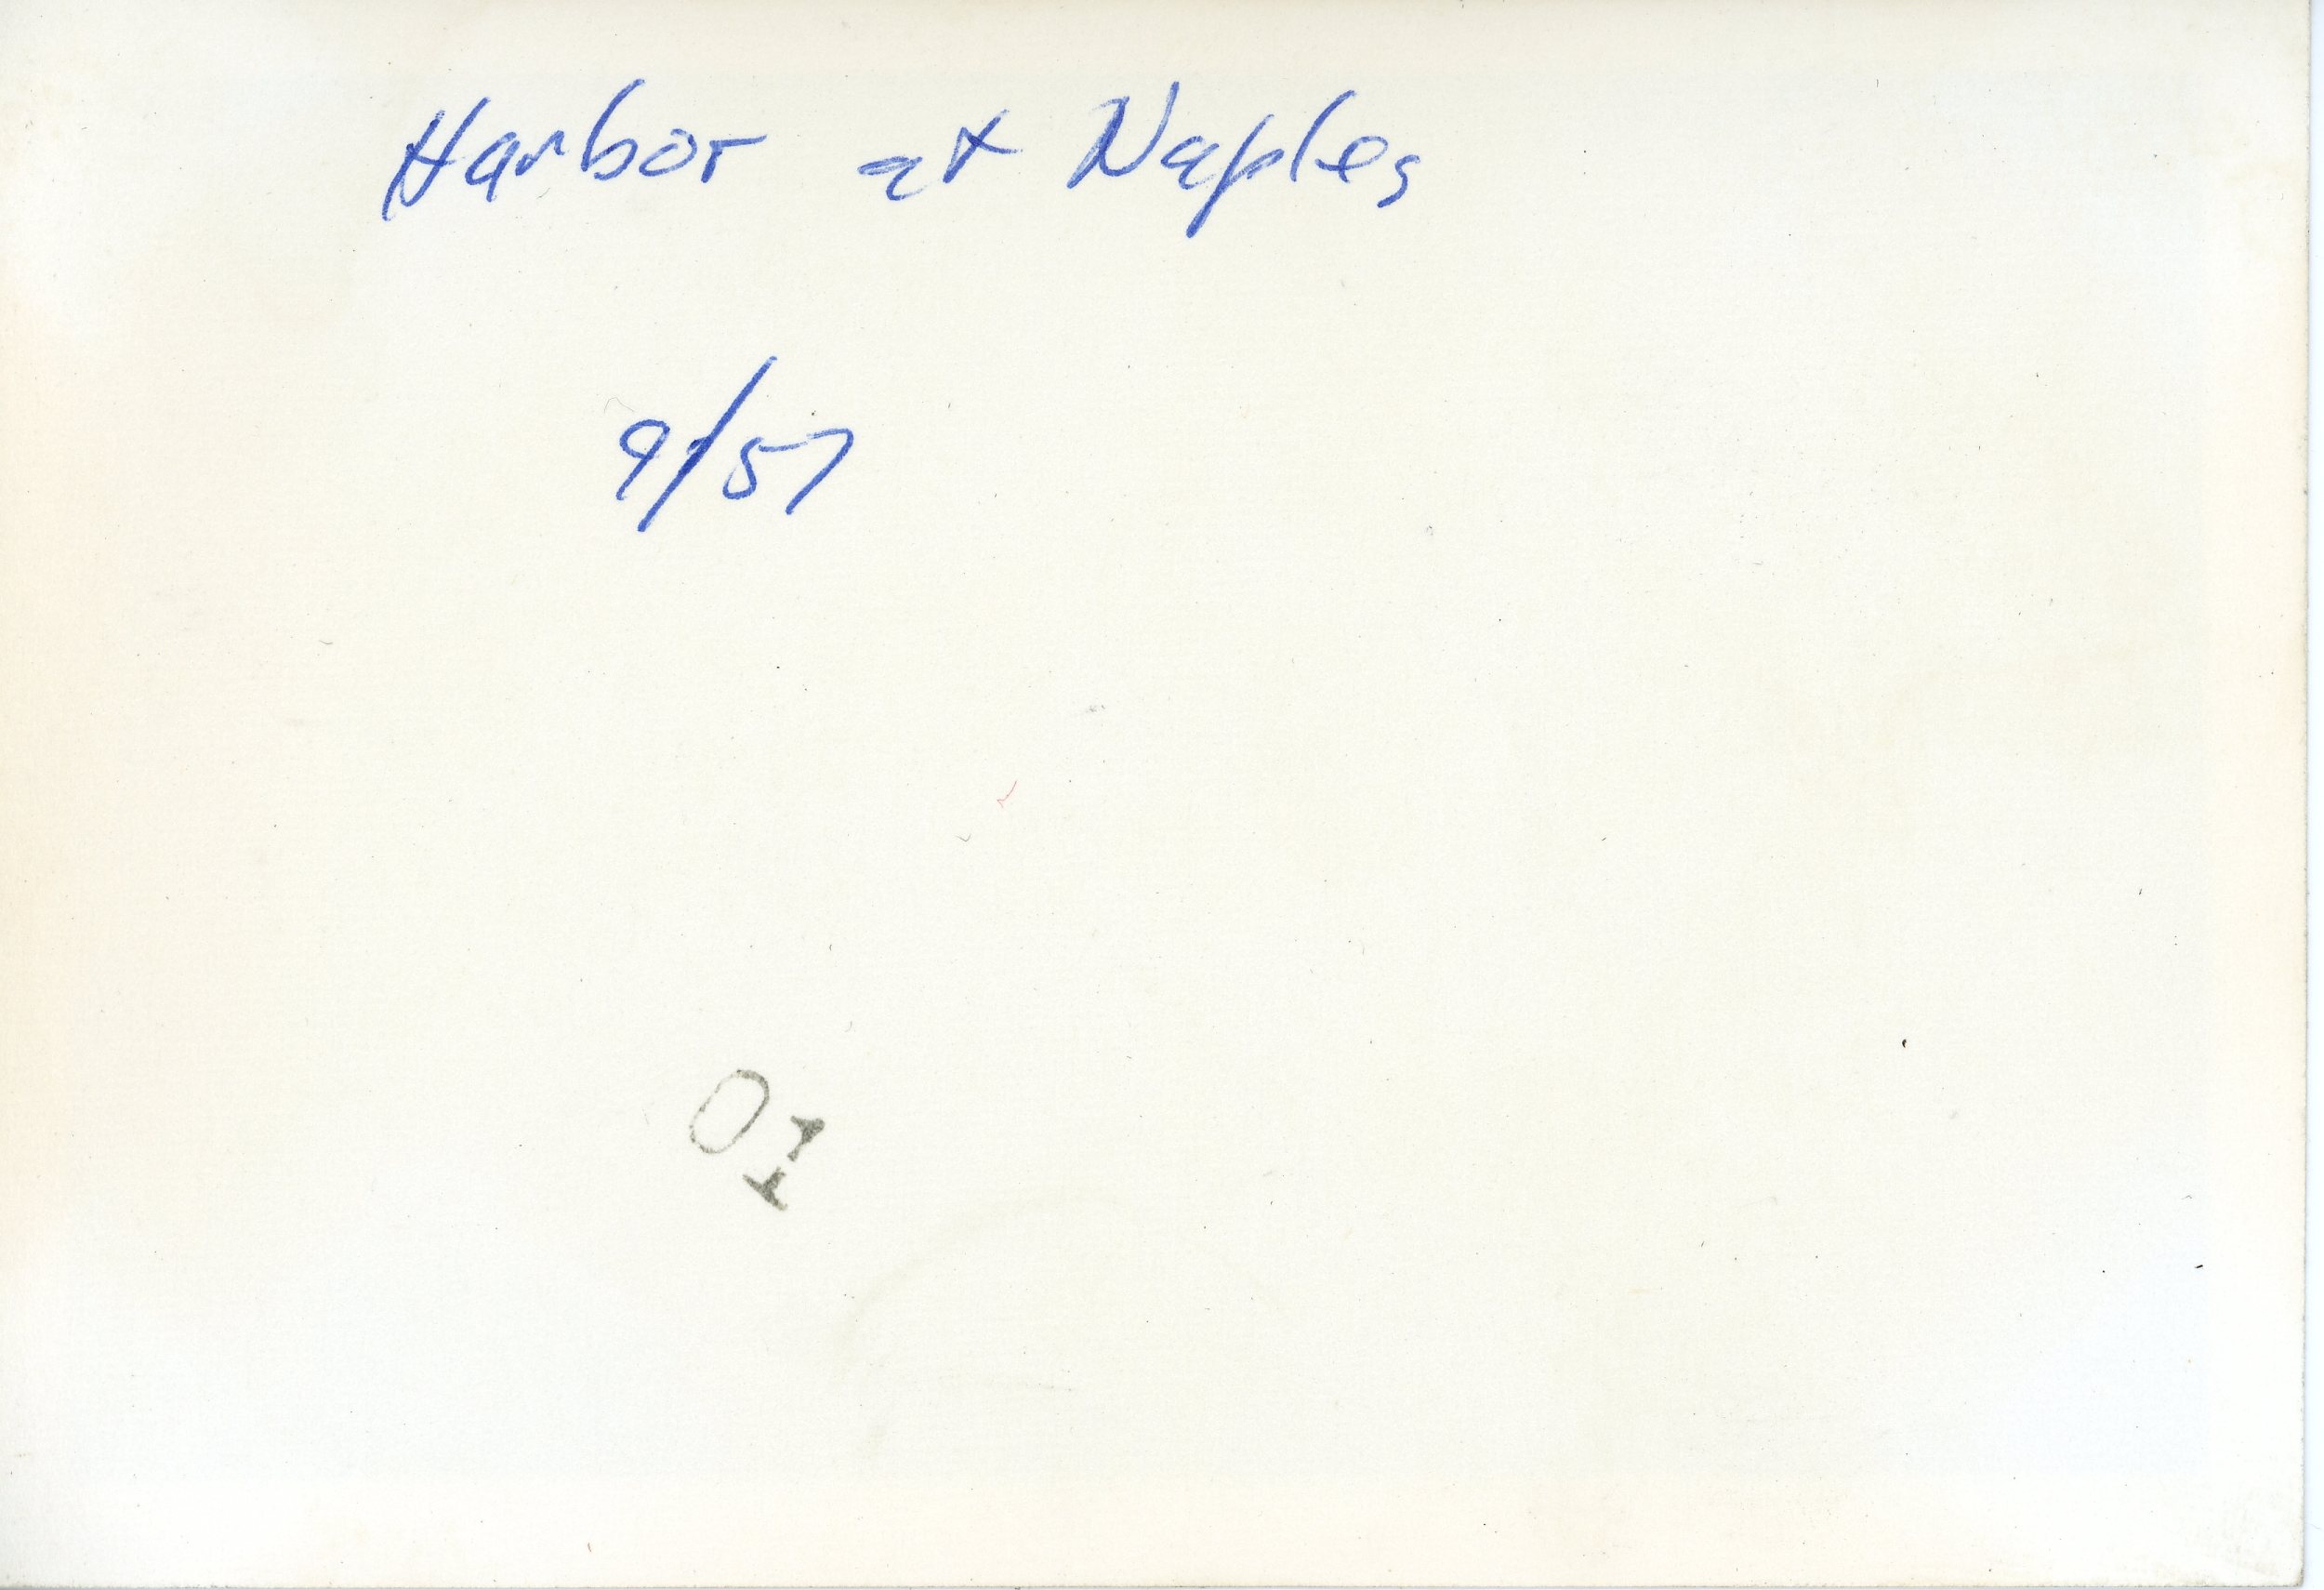 Harbor at Naples
9/57
01